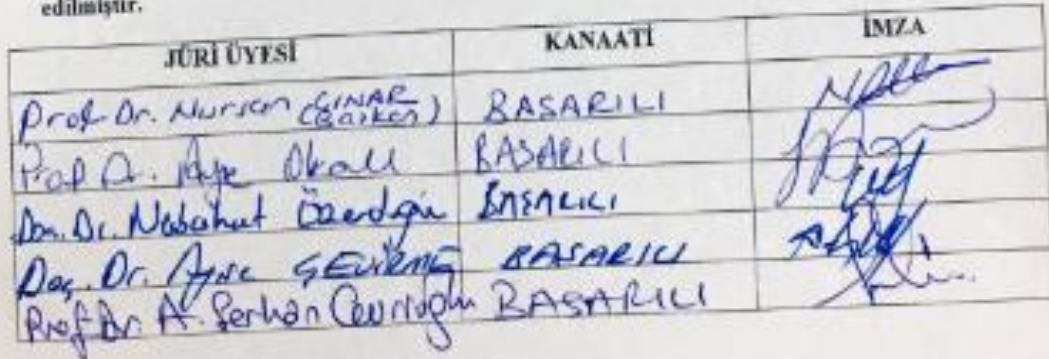 edilmiştir.
JÜRİ ÜYESİ KANAATİ İMZA
Prof. Dr. Nursan ÇINAR (Başkan) BAŞARILI
Prof. Dr. Ayşe Okanlı BAŞARILI
Doç. Dr. Nebahat Özerdoğan BAŞARILI
Doç. Dr. Ayşe ÇEVİRME BAŞARILI
Prof. Dr. A. Serhan Cevrioğlu BAŞARILI